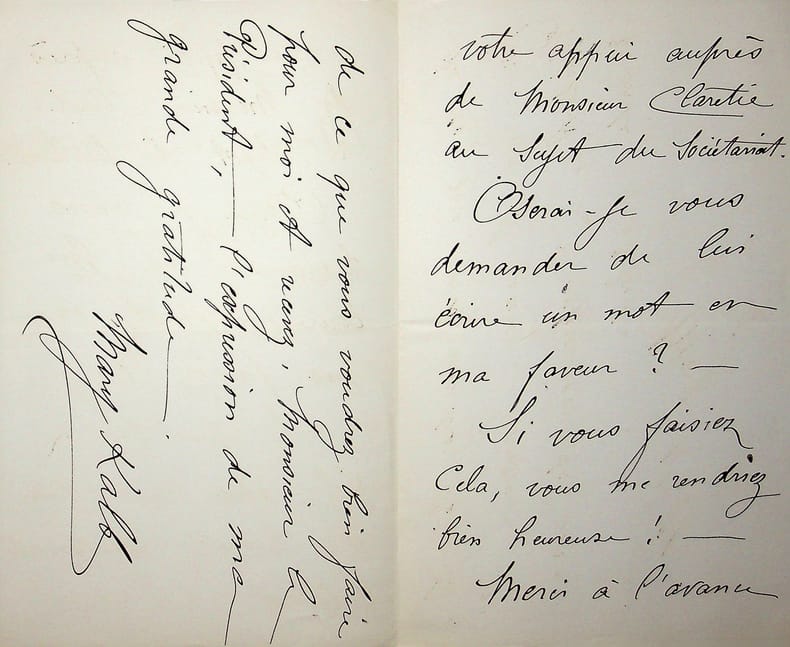 votre appui auprès
de Monsieur Claretie
au sujet du Sociétariat.
Oserai-je vous
demander de lui
écrire un mot en
ma faveur ? —
Si vous faisiez
Cela, vous me rendriez
bien heureuse ! —
Merci à l'avance
de ce que vous voudrez bien faire
pour moi et recevez, Monsieur le
Président, — l'expression de ma
grande gratitude — .
Mary Kalb